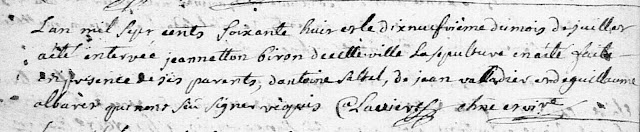 L'an mil sept cents soixante huit et le dixneufvième du mois de juillet
a été interrée jeannetton biron de cette ville La sepulture en a été faite
en presence de ses parents, d'antoine saltel, de jean valladier et de guillaume
albarer qui n'ont sçu signer réquis